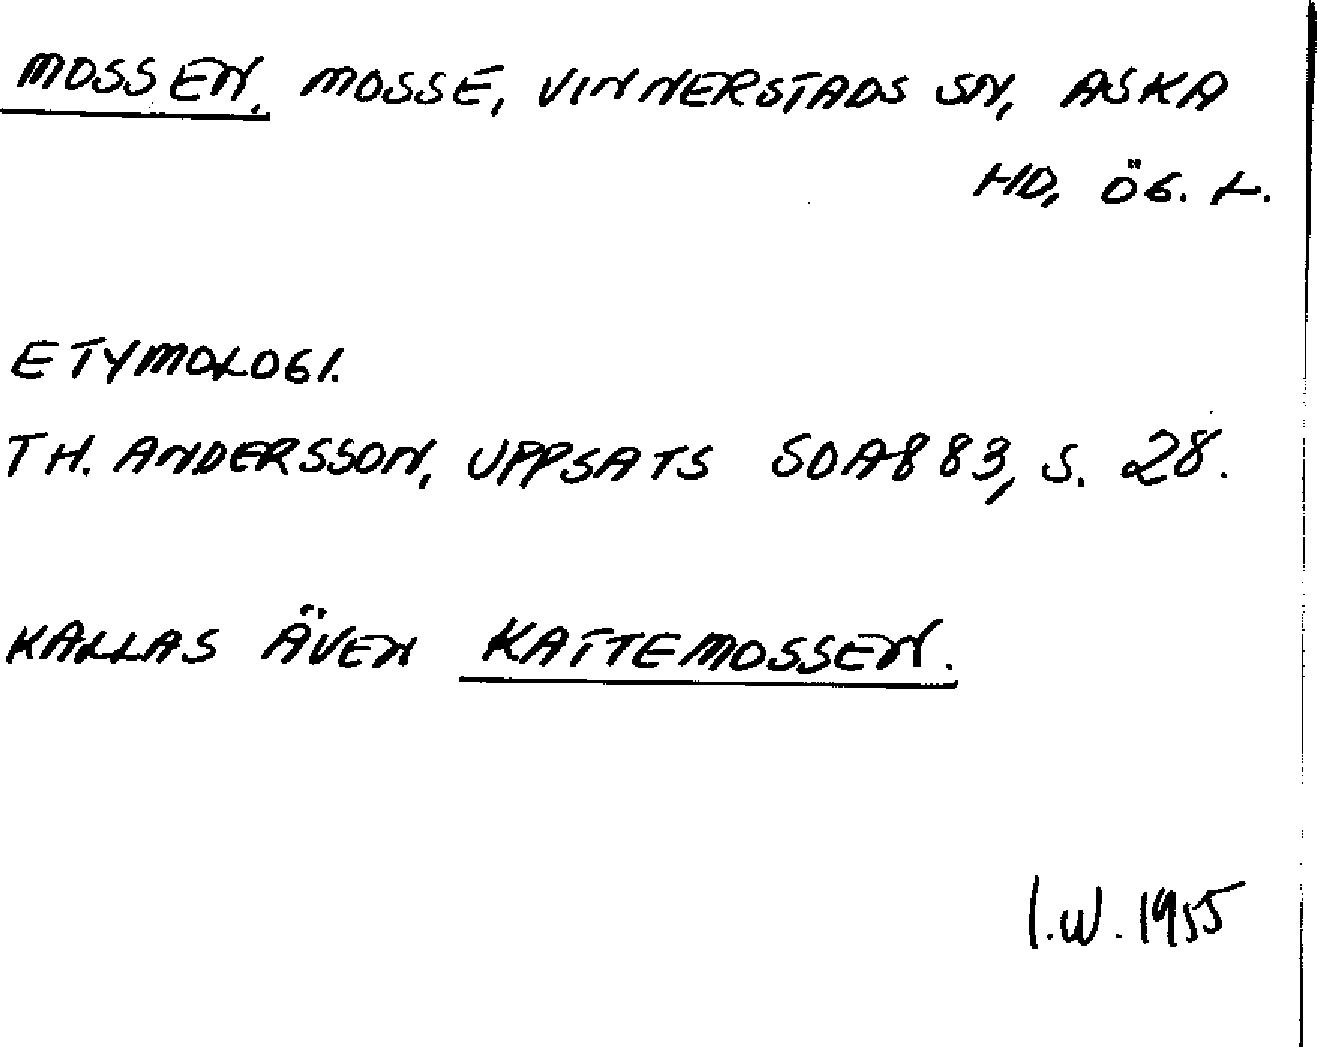 MOSSEN. MOSSE, VINNERSTADS SN, ASKA
HD, ÖG. L.
ETYMOLOGI.
TH. ANDERSSON, UPPSATS SOA883, S. 28.
KALLAS ÄVEN KATTEMOSSEN.
I.W. 1955